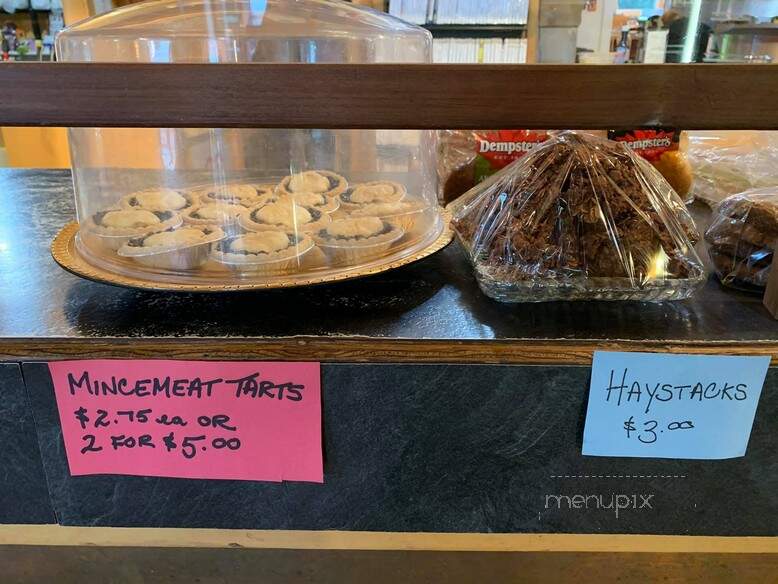 Dempster's
Dempster's
MINCEMEAT TARTS
$2.75 ea OR
2 FOR $5.00
HAYSTACKS
$3.00
menupix